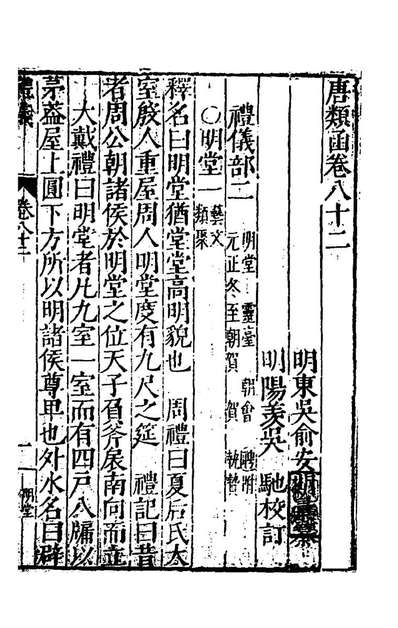 唐類函卷八十二
明東吳俞安期彙纂
明陽羨吳　馳校訂
禮儀部二　明堂　靈臺　朝會　聘
元正冬至朝賀　賀
○明堂一　藝文類聚
釋名曰明堂猶堂堂高明貌也　周禮曰夏后氏太
室殷人重屋周人明堂度有九尺之筵　禮記曰昔
者周公朝諸侯於明堂之位天子負斧扆南向而立
大戴禮曰明堂者凡九室一室而有四戶八牖以
茅蓋屋上圓下方所以明諸侯尊卑也外水名曰辟
卷八十二
一
明堂